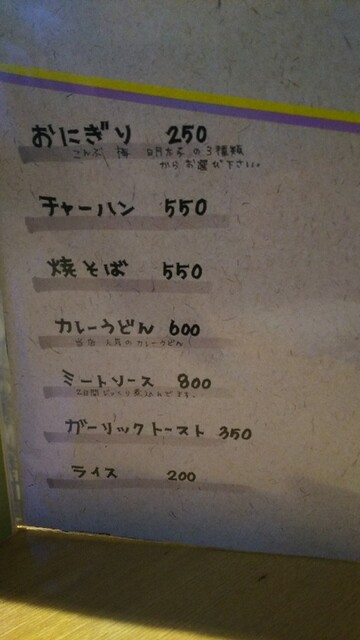 おにぎり 250
こんぶ 梅 明太子 の3種類
からお選び下さい。
チャーハン 550
焼そば 550
カレーうどん 600
当店 人気のカレーうどん
ミートソース 800
煮込んでます。
ガーリックトースト 350
ライス 200